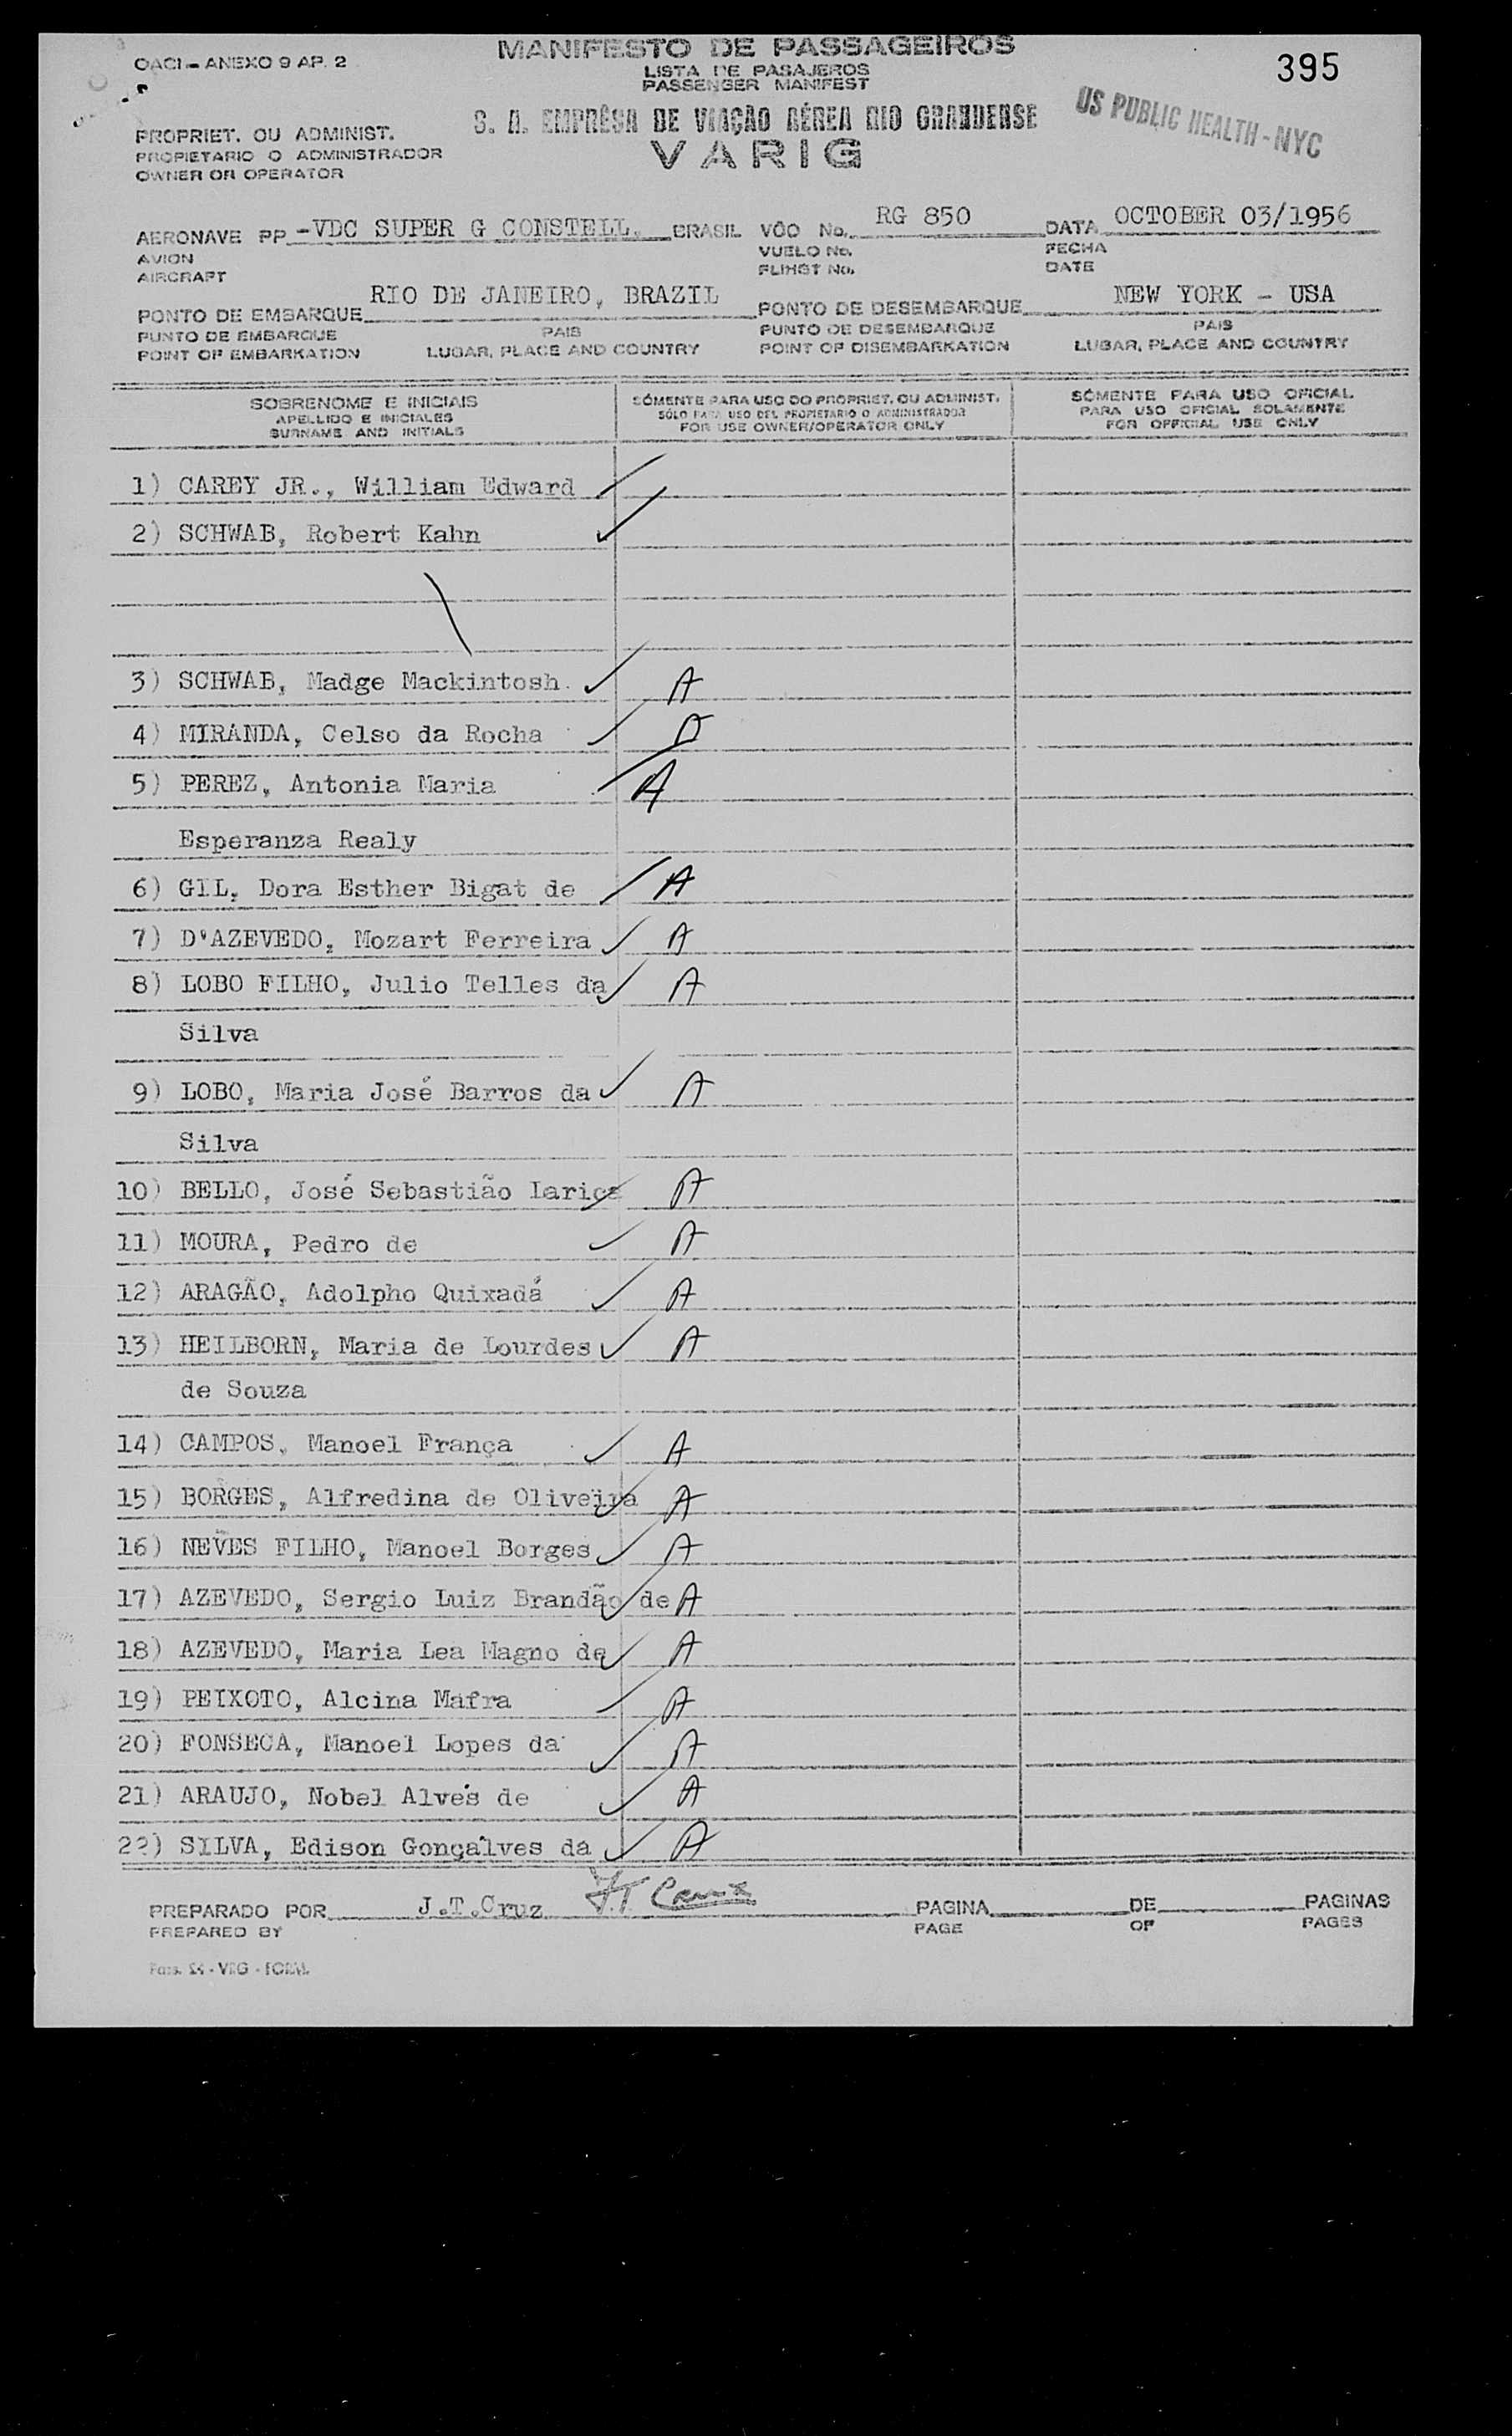 OACI - ANEXO 9 AP. 2
MANIFESTO DE PASSAGEIROS
LISTA DE PASAJEROS
PASSENGER MANIFEST
395
S. A. EMPRÊSA DE VIAÇÃO AÉREA RIO GRANDENSE
VARIG
US PUBLIC HEALTH - NYC
PROPRIET. OU ADMINIST.
PROPIETARIO O ADMINISTRADOR
OWNER OR OPERATOR
AERONAVE PP -VDC SUPER G CONSTELL. BRASIL VÔO No. RG 850 DATA OCTOBER 03/1956
AVION VUELO No. FECHA
AIRCRAFT FLIHGT No. DATE
PONTO DE EMBARQUE RIO DE JANEIRO, BRAZIL PONTO DE DESEMBARQUE NEW YORK - USA
PUNTO DE EMBARQUE PAIS PUNTO DE DESEMBARQUE PAIS
POINT OF EMBARKATION LUGAR, PLACE AND COUNTRY POINT OF DISEMBARKATION LUGAR, PLACE AND COUNTRY
SOBRENOME E INICIAIS SÓMENTE PARA USO DO PROPRIET. OU ADMINIST. SÓMENTE PARA USO OFICIAL
APELLIDO E INICIALES SÓLO PARA USO DEL PROPIETARIO O ADMINISTRADOR PARA USO OFICIAL SOLAMENTE
SURNAME AND INITIALS FOR USE OWNER/OPERATOR ONLY FOR OFFICIAL USE ONLY
1) CAREY JR., William Edward
2) SCHWAB, Robert Kahn
3) SCHWAB, Madge Mackintosh A
4) MIRANDA, Celso da Rocha
5) PEREZ, Antonia Maria A
Esperanza Realy
6) GIL, Dora Esther Bigat de A
7) D'AZEVEDO, Mozart Ferreira A
8) LOBO FILHO, Julio Telles da A
Silva
9) LOBO, Maria José Barros da A
Silva
10) BELLO, José Sebastião Iariça A
11) MOURA, Pedro de A
12) ARAGÃO, Adolpho Quixadá A
13) HEILBORN, Maria de Lourdes A
de Souza
14) CAMPOS, Manoel França A
15) BORGES, Alfredina de Oliveira A
16) NEVES FILHO, Manoel Borges A
17) AZEVEDO, Sergio Luiz Brandão de A
18) AZEVEDO, Maria Lea Magno de A
19) PEIXOTO, Alcina Mafra A
20) FONSECA, Manoel Lopes da A
21) ARAUJO, Nobel Alves de A
22) SILVA, Edison Gonçalves da A
PREPARADO POR J.T.Cruz J.T. Cruz PAGINA DE PAGINAS
PREPARED BY PAGE OF PAGES